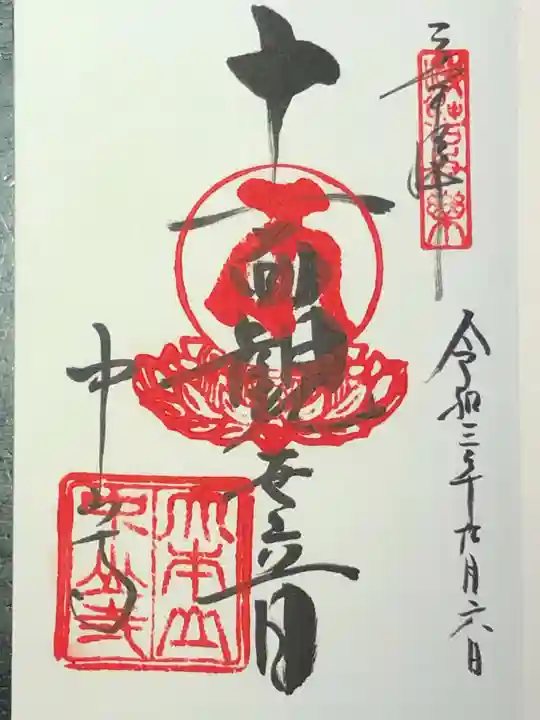 令和三年九月六日
十一面観世音
中山寺
大本山
中山寺